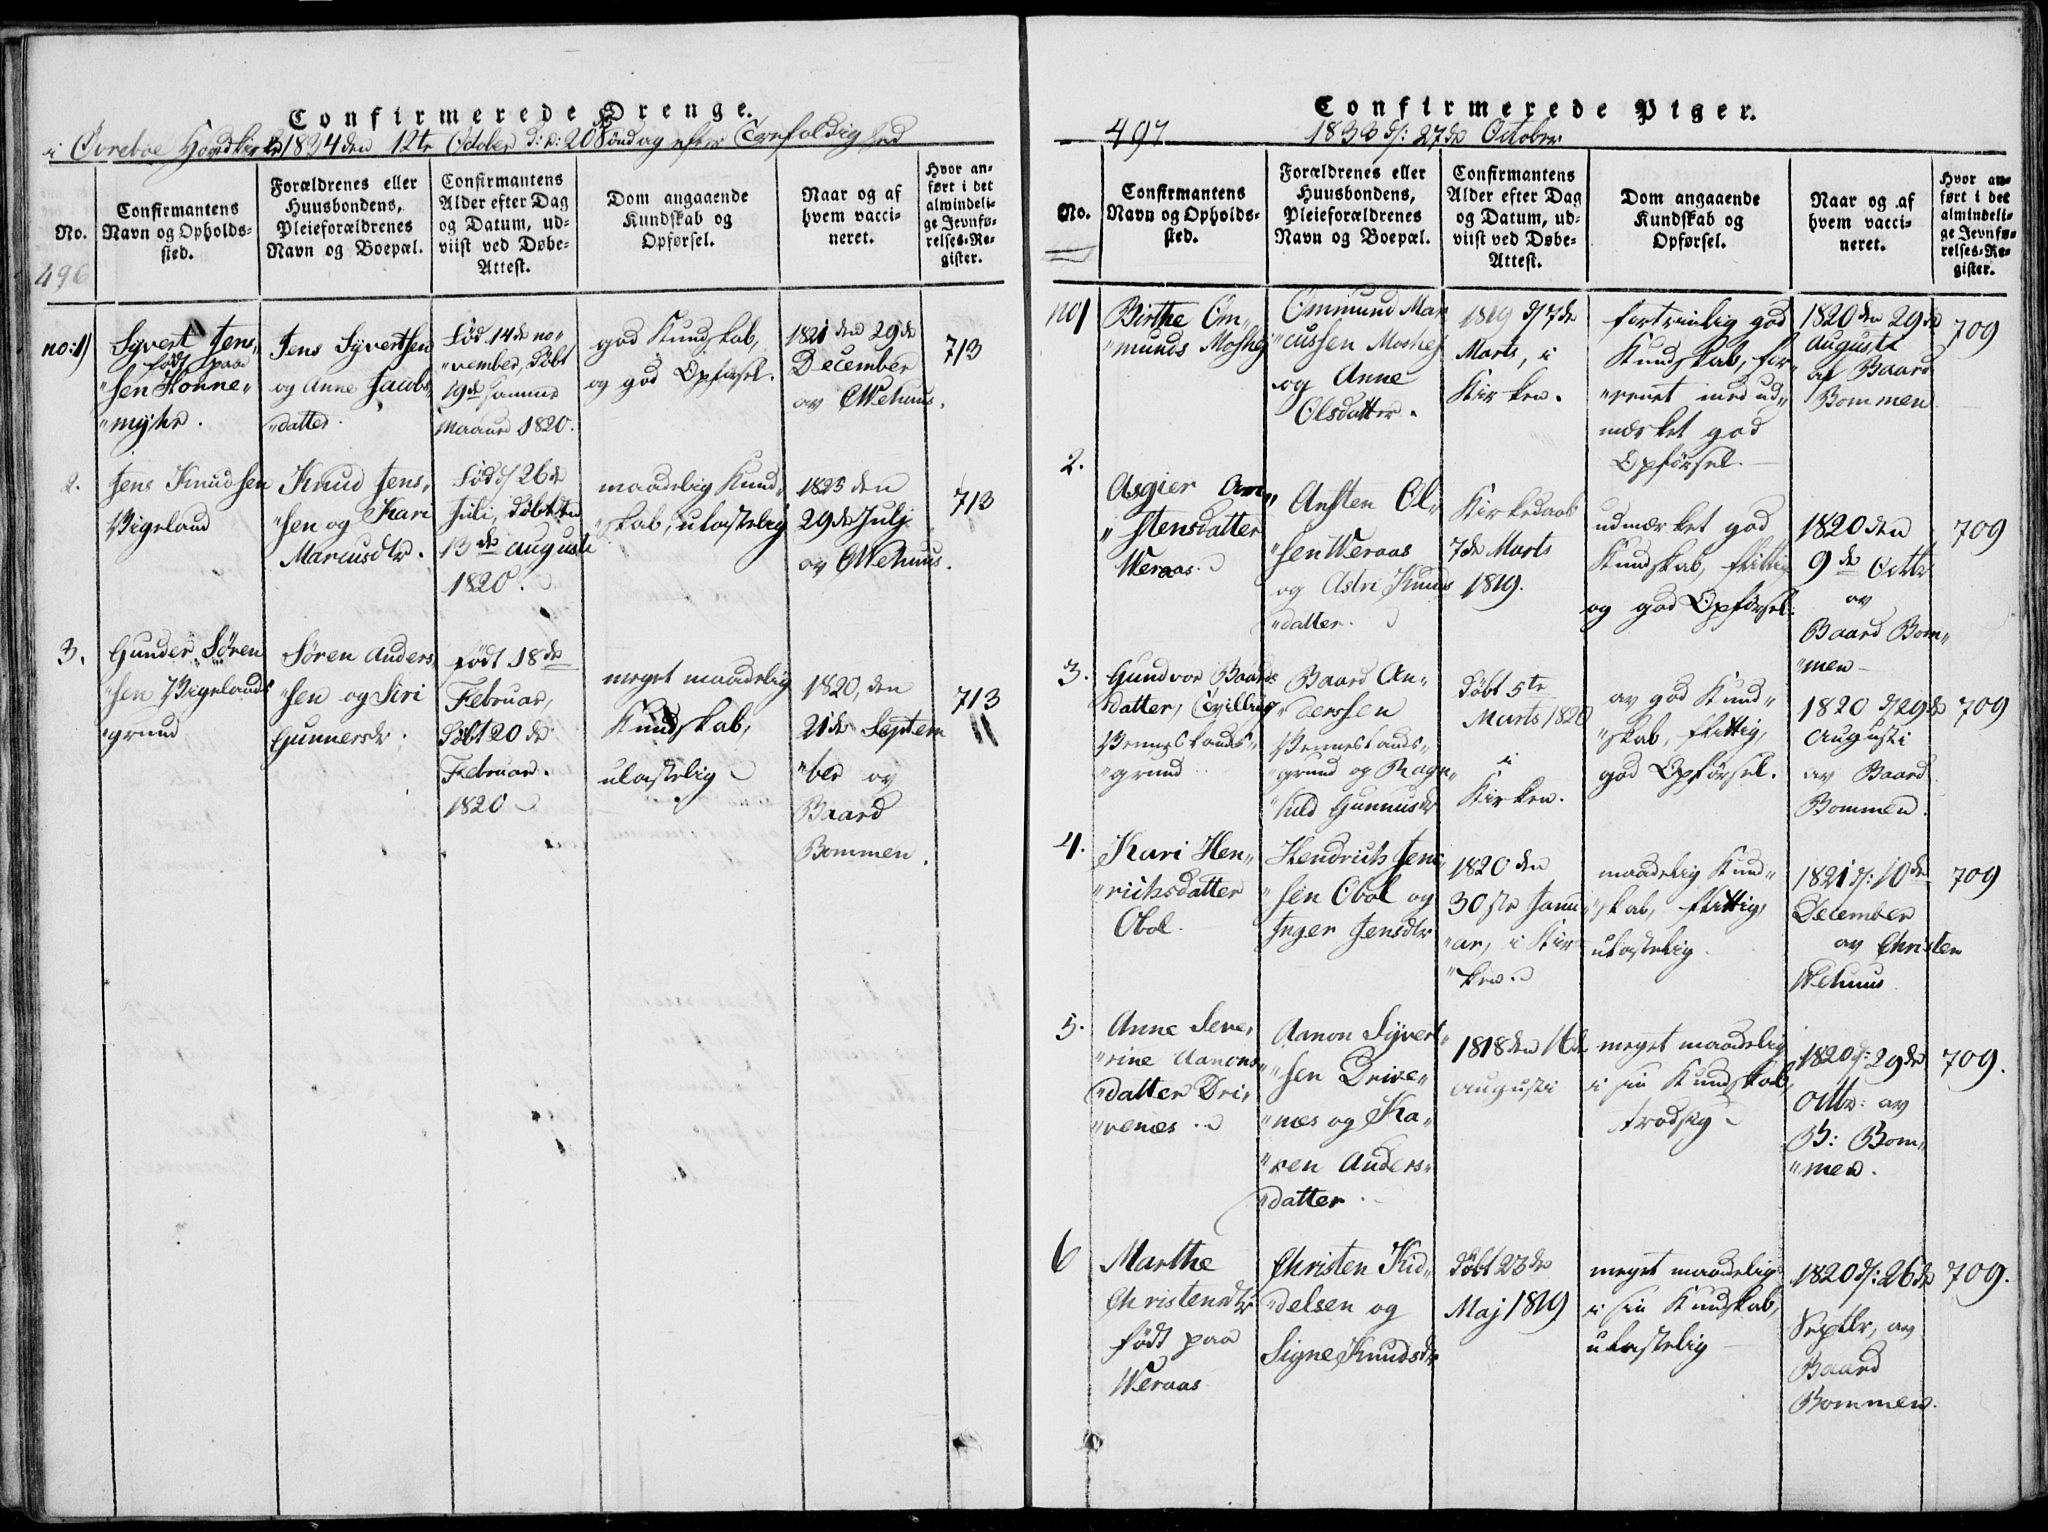 Confirmerede Drenge.
i Øvreboe Hovedkirke 1834 den 12te October d: e: 20 Søndag efter Trefoldighed
No.
Confirmantens
Navn og Opholds-
sted.
Forældrenes eller
Huusbondens,
Pleieforældrenes
Navn og Boepæl.
Confirmantens
Alder efter Dag
og Datum, ud-
viist ved Døbe-
Attest.
Dom angaaende
Kundskab og
Opførsel.
Naar og af
hvem vacci-
neret.
Hvor an-
ført i det
almindeli-
ge Jevnfø-
relses-Re-
gister.
496
no: 1)
Syvert Jens-
født paa
"sen Honne-
"myhr.
Jens Syvertsen
og Anne Jacobs-
"datter.
Fød 14de no-
"vember, døbt
19de samme
Maaned 1820.
god Kundskab,
og god Opførsel.
1821 den 29de
December
av CWehuus.
713
2.
Jens Knudsen
Vigeland
Knud Jens-
"sen og Kari
Marcusdtr.
Fød d/ 26de
Juli, døbt den
13de Augusti
1820.
maadelig Kund-
"skab, ulastelig
1825 den
29de Julj
av CWehuus.
713
3.
Gunder Søren
"sen Vigelands
"grund
Søren Anders
"sen og Siri
Gunnersdr.
Født 18de
Februar,
døbt 20de
Februar.
1820
meget maadelig
Kundskab,
ulastelig
1820, den
21de Septem
"ber av
Baard
Bommen.
713
Confirmerede Piger.
497
1833 d/: 27de October
No.
Confirmantens
Navn og Opholds-
sted.
Forældrenes eller
Huusbondens,
Pleieforældrenes
Navn og Boepæl.
Confirmantens
Alder efter Dag
og Datum, ud-
viist ved Døbe-
Attest.
Dom angaaende
Kundskab og
Opførsel.
Naar og af
hvem vacci-
neret.
Hvor an-
ført i det
almindeli-
ge Jevnfø-
relses-Re-
gister.
no 1
Birthe Om-
"munds Moshej
Ommund Mar
"cussen Moshej
og Anne
Olsdatter.
1819 d/ 7de
Marts, i
Kirken.
fortrinlig god
Kundskab, for-
"eenet med ud-
mærket god
Opførsel.
1820 den 29de
Augusti
af Baard
Bommen
709
2.
Asgier Ans-
"stensdatter
Weraas.
Ansten Ol-
"sen Weraas
og Astri Knuds
"datter.
Kirkedaab
7de Marts
1819.
udmærket god
Kundskab, flittig
og god Opførsel.
1820 den
9de Octbr
av
Baard Bom-
"men
709
3.
Gundvor Baards
datter, Tvilling
Venneslands-
"grund
Baard An-
"derssen
Venneslands-
"grund og Ragn-
"hild Gunnusdr
døbt 5te
Marts 1820
i
Kirken.
av god Kund-
"skab, flittig,
god Opførsel.
1820 d/ 29de
Augusti
av Baard
Bommen.
709
4.
Kari Hen-
"richsdatter
Obol.
Hendrich Jens-
"sen Obol og
Inger Jensdtr
1820 den
30ste Janu-
"ar, i Kir-
"ken.
maadelig Kund-
"skab, flittig,
ulastelig.
1821 d/: 10de
December
av Christen
Wehuus
709
5.
Anne Seve-
"rine Aanons-
"datter Dri-
"venæs.
Aanon Syvert-
"sen Drive-
"næs og Ka-
"ren Anders-
"datter.
1818 den 16de
Augusti
meget maadelig
i sin Kundskab,
trodsig
1820 d: 29de
Octbr: av
B: Bom-
"men.
709.
6
Marthe
Christendtr
født paa
Weraas
Christen Kid-
"delsen og
Signe Knudsdr
døbt 23de
Maj 1819
meget maadelig
i sin Kundskab,
ulastelig
1820 d/: 26de
Septbr, av
Baard
Bommen.
709.